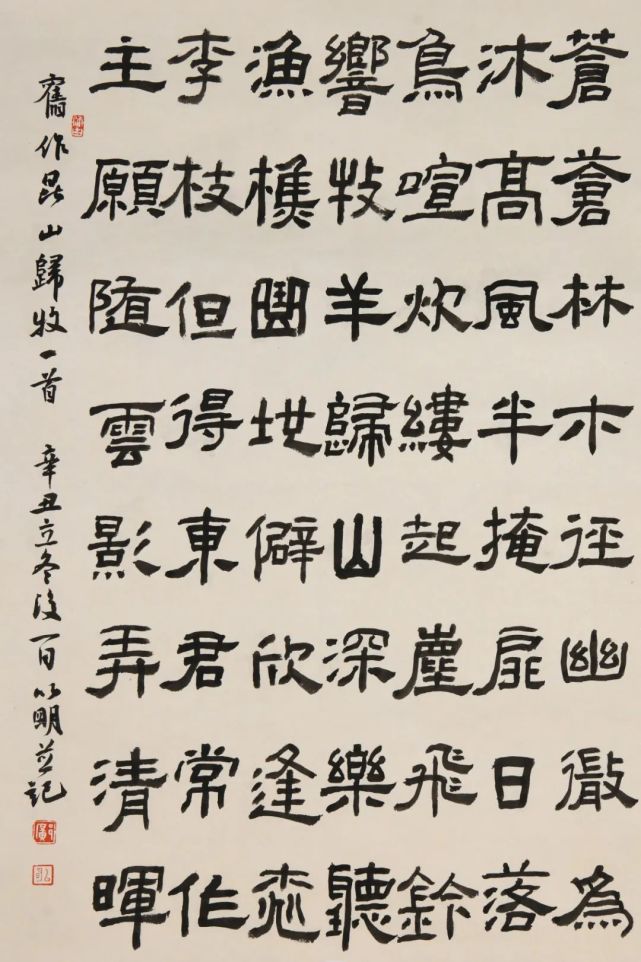 蒼蒼林木徑幽微為
沐高風半掩扉日落
鳥喧炊縷起塵飛鈴
響牧羊歸山深樂聽
漁樵曲地僻欣逢桃
李枝但得東君常作
主願隨雲影弄清暉
舊作昆山歸牧一首 辛丑立冬後一日以明並記